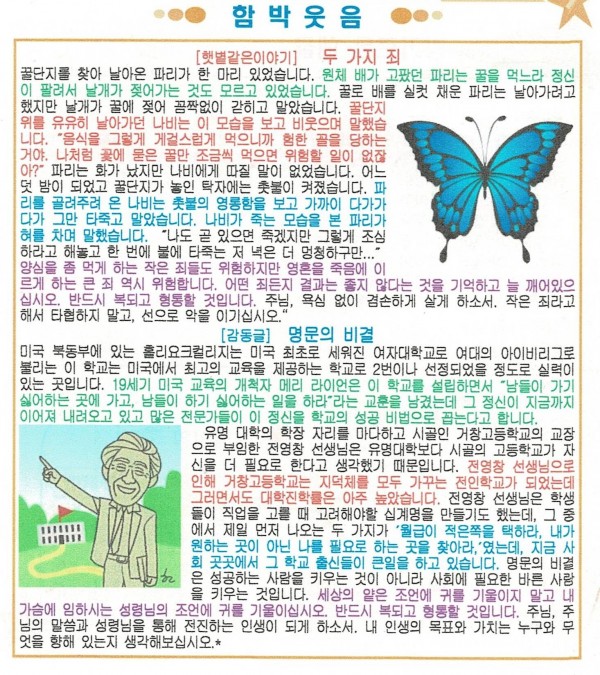 함박웃음
[햇볕같은이야기] 두 가지 죄
꿀단지를 찾아 날아온 파리가 한 마리 있었습니다. 원체 배가 고팠던 파리는 꿀을 먹느라 정신
이 팔려서 날개가 젖어가는 것도 모르고 있었습니다. 꿀로 배를 실컷 채운 파리는 날아가려고
했지만 날개가 꿀에 젖어 꼼짝없이 갇히고 말았습니다. 꿀단지
위를 유유히 날아가던 나비는 이 모습을 보고 비웃으며 말했습
니다. "음식을 그렇게 게걸스럽게 먹으니까 험한 꼴을 당하는
거야. 나처럼 꽃에 묻은 꿀만 조금씩 먹으면 위험할 일이 없잖
아?" 파리는 화가 났지만 나비에게 따질 말이 없었습니다. 어느
덧 밤이 되었고 꿀단지가 놓인 탁자에는 촛불이 켜졌습니다. 파
리를 골려주려 온 나비는 촛불의 영롱함을 보고 가까이 다가가
다가 그만 타죽고 말았습니다. 나비가 죽는 모습을 본 파리가
혀를 차며 말했습니다. "나도 곧 있으면 죽겠지만 그렇게 조심
하라고 해놓고 한 번에 불에 타죽는 저 녁은 더 멍청하구만..."
양심을 좀 먹게 하는 작은 죄들도 위험하지만 영혼을 죽음에 이
르게 하는 큰 죄 역시 위험합니다. 어떤 죄든지 결과는 좋지 않다는 것을 기억하고 늘 깨어있으
십시오. 반드시 복되고 형통할 것입니다. 주님, 욕심 없이 겸손하게 살게 하소서. 작은 죄라고
해서 타협하지 말고, 선으로 악을 이기십시오."
[감동글] 명문의 비결
미국 북동부에 있는 홀리요크컬리지는 미국 최초로 세워진 여자대학교로 여대의 아이비리그로
불리는 이 학교는 미국에서 최고의 교육을 제공하는 학교로 2번이나 선정되었을 정도로 실력이
있는 곳입니다. 19세기 미국 교육의 개척자 메리 라이언은 이 학교를 설립하면서 "남들이 가기
싫어하는 곳에 가고, 남들이 하기 싫어하는 일을 하라"라는 교훈을 남겼는데 그 정신이 지금까지
이어져 내려오고 있고 많은 전문가들이 이 정신을 학교의 성공 비법으로 꼽는다고 합니다.
유명 대학의 학장 자리를 마다하고 시골인 거창고등학교의 교장
으로 부임한 전영창 선생님은 유명대학보다 시골의 고등학교가 자
신을 더 필요로 한다고 생각했기 때문입니다. 전영창 선생님으로
인해 거창고등학교는 지덕체를 모두 가꾸는 전인학교가 되었는데
그러면서도 대학진학률은 아주 높았습니다. 전영창 선생님은 학생
들이 직업을 고를 때 고려해야할 십계명을 만들기도 했는데, 그 중
에서 제일 먼저 나오는 두 가지가 '월급이 적은쪽을 택하라, 내가
원하는 곳이 아닌 나를 필요로 하는 곳을 찾아라,'였는데, 지금 사
회 곳곳에서 그 학교 출신들이 큰일을 하고 있습니다. 명문의 비결
은 성공하는 사람을 키우는 것이 아니라 사회에 필요한 바른 사람
을 키우는 것입니다. 세상의 얕은 조언에 귀를 기울이지 말고 내
가슴에 임하시는 성령님의 조언에 귀를 기울이십시오. 반드시 복되고 형통할 것입니다. 주님, 주
님의 말씀과 성령님을 통해 전진하는 인생이 되게 하소서. 내 인생의 목표와 가치는 누구와 무
엇을 향해 있는지 생각해보십시오.*